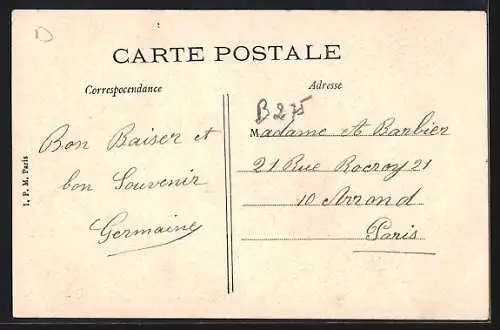 D
CARTE POSTALE
Correspocendance
Adresse
B275
Bon Baiser et
bon Souvenir
Germaine
Madame A Barbier
21 Rue Rocroy 21
10 Arrond
Paris
I. P. M. Paris